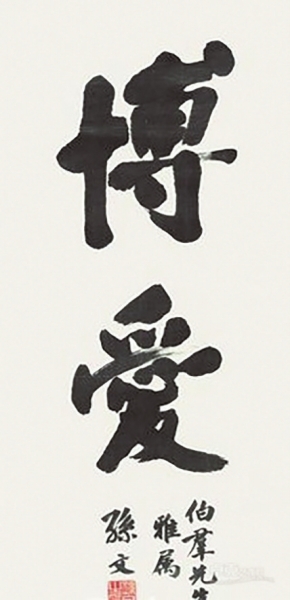 博愛
伯羣先生
雅属
孫文